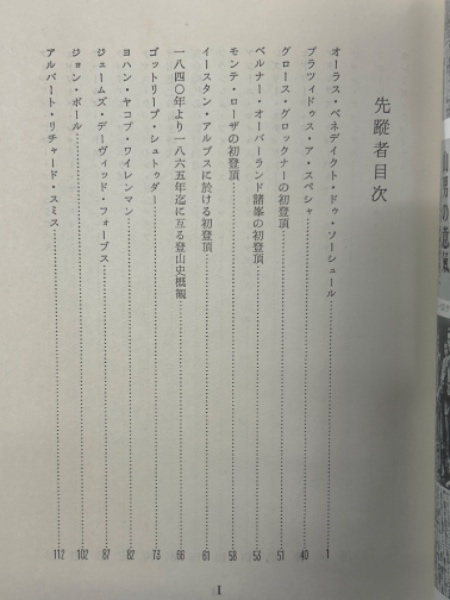 先蹤者目次
オーラス・ベネディクト・ドゥ・ソーシュール 1
プラツィドゥス・ア・スペシャ 40
グロース・グロックナーの初登頂 51
ベルナー・オーバーランド諸峯の初登頂 53
モンテ・ローザの初登頂 58
イースタン・アルプスに於ける初登頂 61
一八四〇年より一八六五年迄に亙る登山史概観 66
ゴットリーブ・シュトゥダー 73
ヨハン・ヤコブ・ワイレンマン 82
ジェームズ・デーヴィッド・フォーブス 87
ジョン・ボール 102
アルバート・リチャード・スミス 112
I